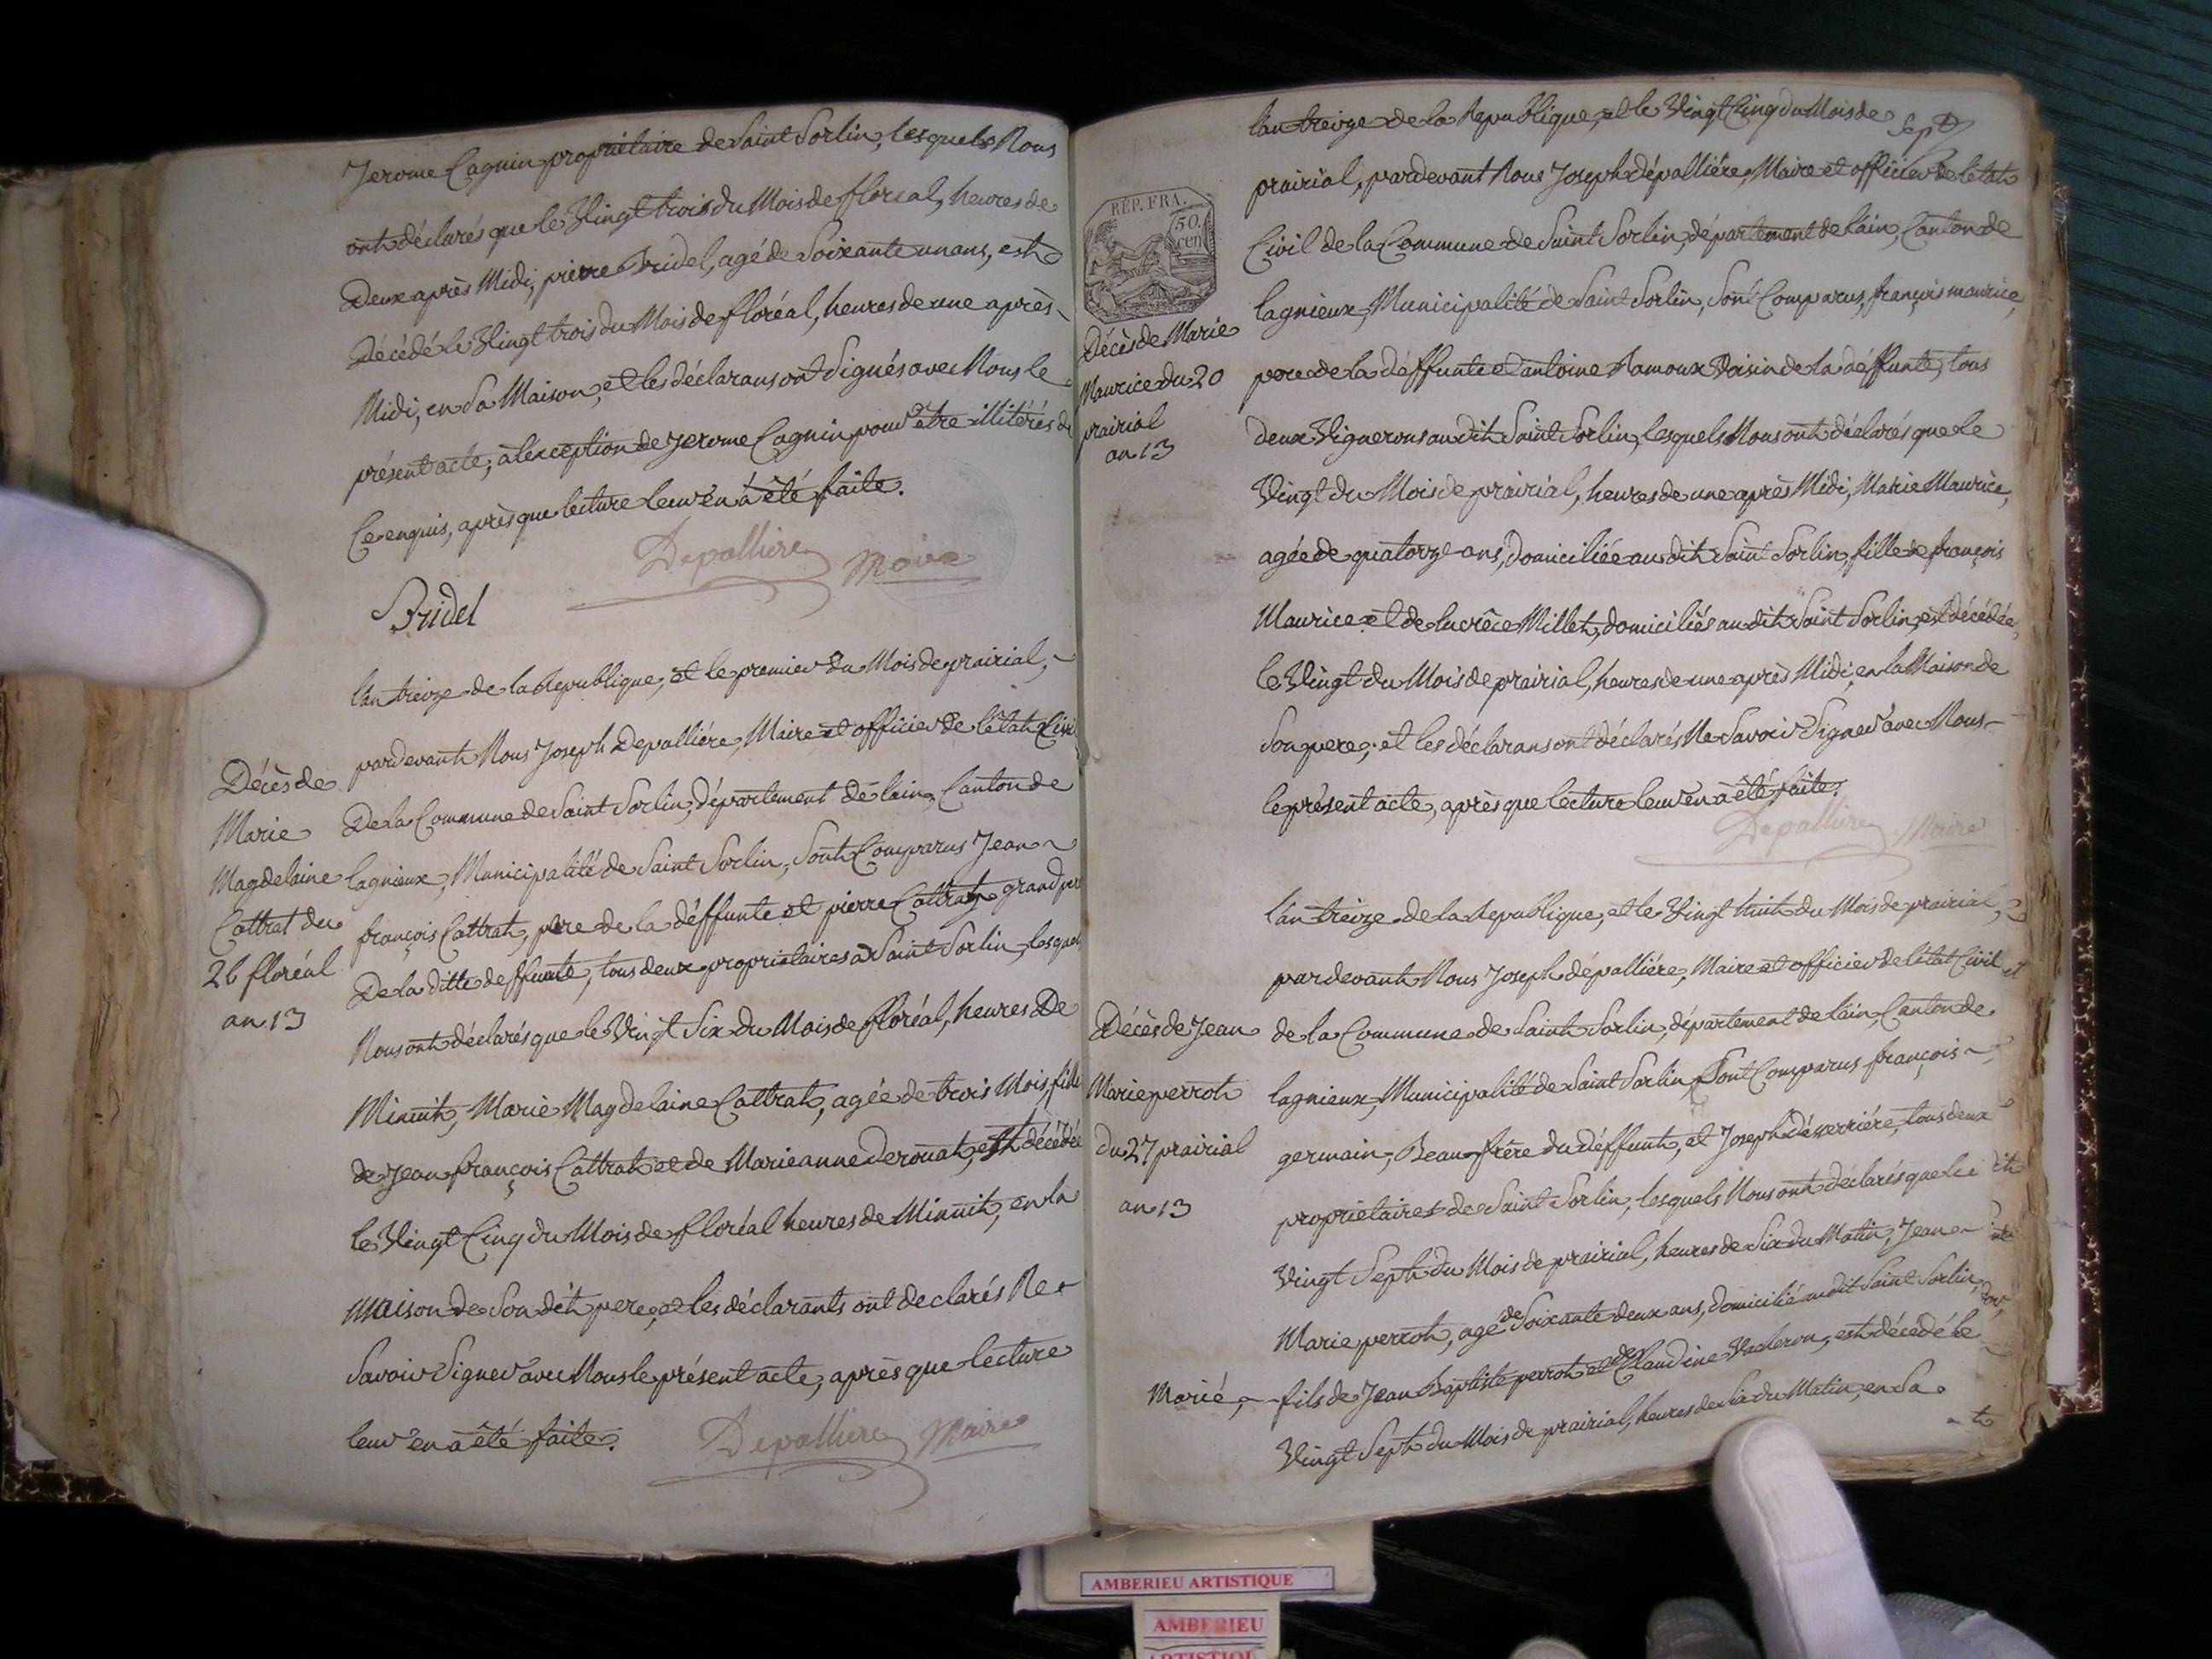 Jerome Cagnin propriétaire de Saint Sorlin, lesquels Nous
ont déclarés que le Vingt trois du Mois de floreal, heures de
Deux après Midi, pierre Bridel, agé de Soixante un ans, est
Décédé le Vingt trois du Mois de floréal, heures de une après
Midi, en Sa Maison, et les déclarans ont Signés avec Nous le
présent acte, à l'exception de Jerome Cagnin pour être illitérés de
Ce enquis, après que lecture leur en à été faite.
Depalliere Maire
Bridel
Décès de
Marie
Magdelaine
Cattrat du
26 floréal
an 13
l'an treize de la Republique, et le premier du Mois de prairial,
pardevant Nous Joseph Depalliére, Maire et officier de l'état Civil
De la Commune de Saint Sorlin, département de lain, Canton de
lagnieux, Municipalité de Saint Sorlin, Sont Comparus Jean
françois Cattrat, pere de la déffunte et pierre Cattrat, grand pere
De la ditte deffunte, tous deux propriétaires à Saint Sorlin, lesquels
Nous ont déclarés que le Vingt Six du Mois de floréal, heures De
Minuit, Marie Magdelaine Cattrat, agée de trois Mois, fille
de Jean françois Cattrat et de Marieanne Derouat, est décédée
le Vingt Cinq du Mois de floréal heures de Minuit, en la
Maison de Son dit pere, et les déclarants ont declarés Ne
Savoir Signer avec Nous le présent acte, après que lecture
leur en à été faite.
Depalliere Maire
REP. FRA.
50.
cen
Décès de Marie
Maurice du 20
prairial
an 13
l'an treize de la Republique, et le Vingt Cinq du Mois de
Sept
prairial, pardevant Nous Joseph dépalliére, Maire et officier de l'état
Civil de la Commune de Saint Sorlin, département de lain, Canton de
lagnieux, Municipalité de Saint Sorlin, Sont Comparus, françois maurice,
pere de la déffunte et antoine Ramoux Voisin de la déffunte, tous
deux Vignerons au dit Saint Sorlin, lesquels Nous ont déclarés que le
Vingt du Mois de prairial, heures de une après Midi, Marie Maurice,
agée de quatorze ans, Domiciliée au dit Saint Sorlin, fille de françois
Maurice et de lucrêce Millet, domiciliés au dit Saint Sorlin, est décédée,
le Vingt du Mois de prairial, heures de une après Midi, en la Maison de
Son pere, et les déclarans ont déclarés Ne Savoir Signer avec Nous
le présent acte, après que lecture leur en à été faite.
Depalliere Maire
Décès de Jean
Marie perrot
du 27 prairial
an 13
l'an treize de la Republique, et le Vingt huit du Mois de prairial,
pardevant Nous Joseph dépalliére, Maire et officier de l'état Civil
de la Commune de Saint Sorlin, département de lain, Canton de
lagnieux, Municipalité de Saint Sorlin, Sont Comparus françois
germain, Beau frère du déffunt, et Joseph déverriére, tous deux
propriétaires de Saint Sorlin, lesquels Nous ont déclarés que le
Vingt Sept du Mois de prairial, heures de Six du Matin, Jean
Marie perrot, agé de Soixante deux ans, domicilié au dit Saint Sorlin,
Marié, fils de Jean Baptiste perrot et de Claudine Vacheron, est décédé le
Vingt Sept du Mois de prairial, heures de Six du Matin, en Sa
AMBERIEU ARTISTIQUE
AMBERIEU
ARTISTIQUE